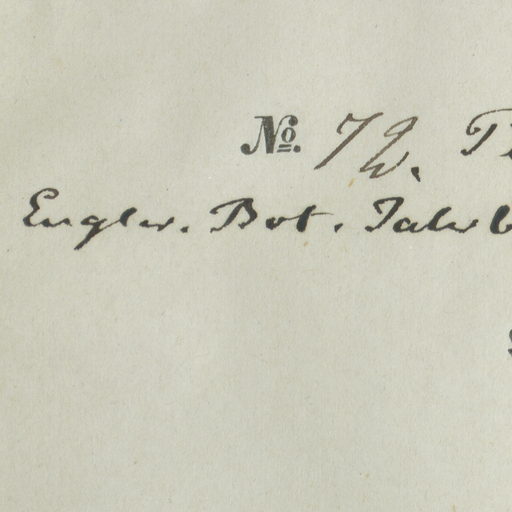 No. 72.
Engler. Bot. Jahrb